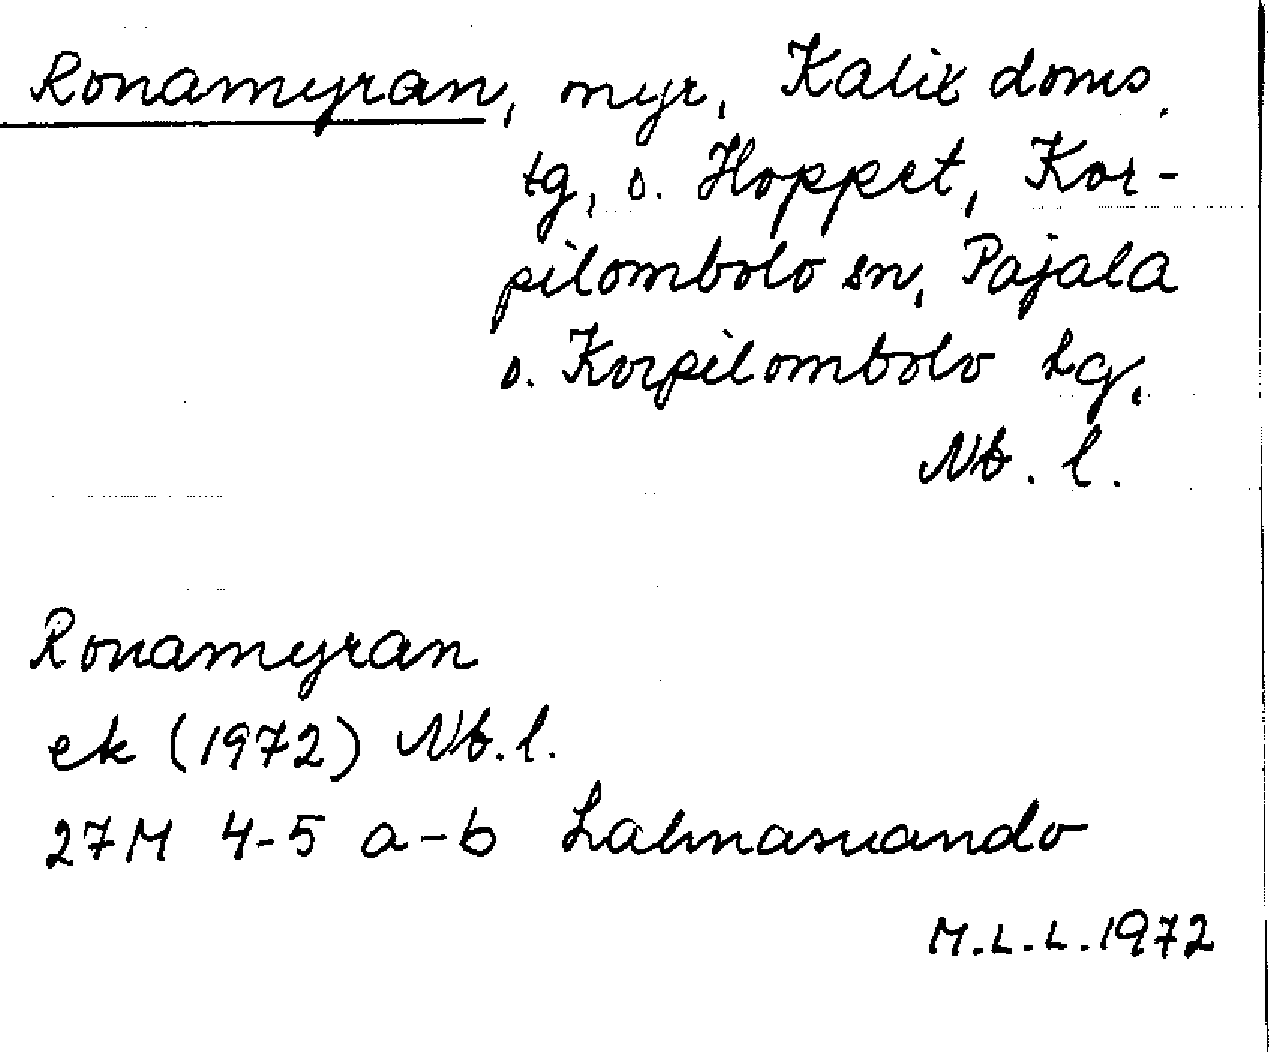 Ronamyran, myr, Kalix doms.
tg, o. Hoppet, Kor-
pilombolo sn, Pajala
o. Korpilombolo tg,
Nb. l.
Ronamyran
ek (1972) Nb. l.
27M 4-5 a-b Lahnasuando
M.L.L. 1972